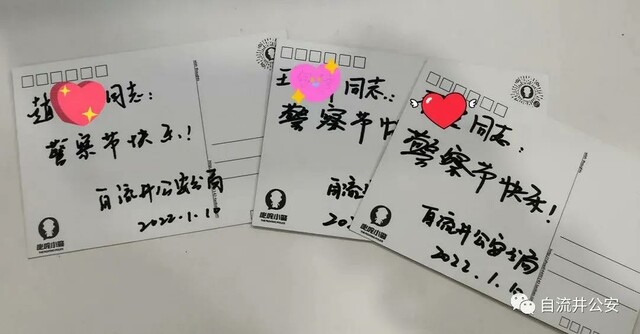 赵 同志:
警察节快乐!
自流井公安分局
2022.1.10
王 同志:
警察节快
自流
2022.
同志:
警察节快乐!
自流井公安分局
2022.1.10
自流井公安